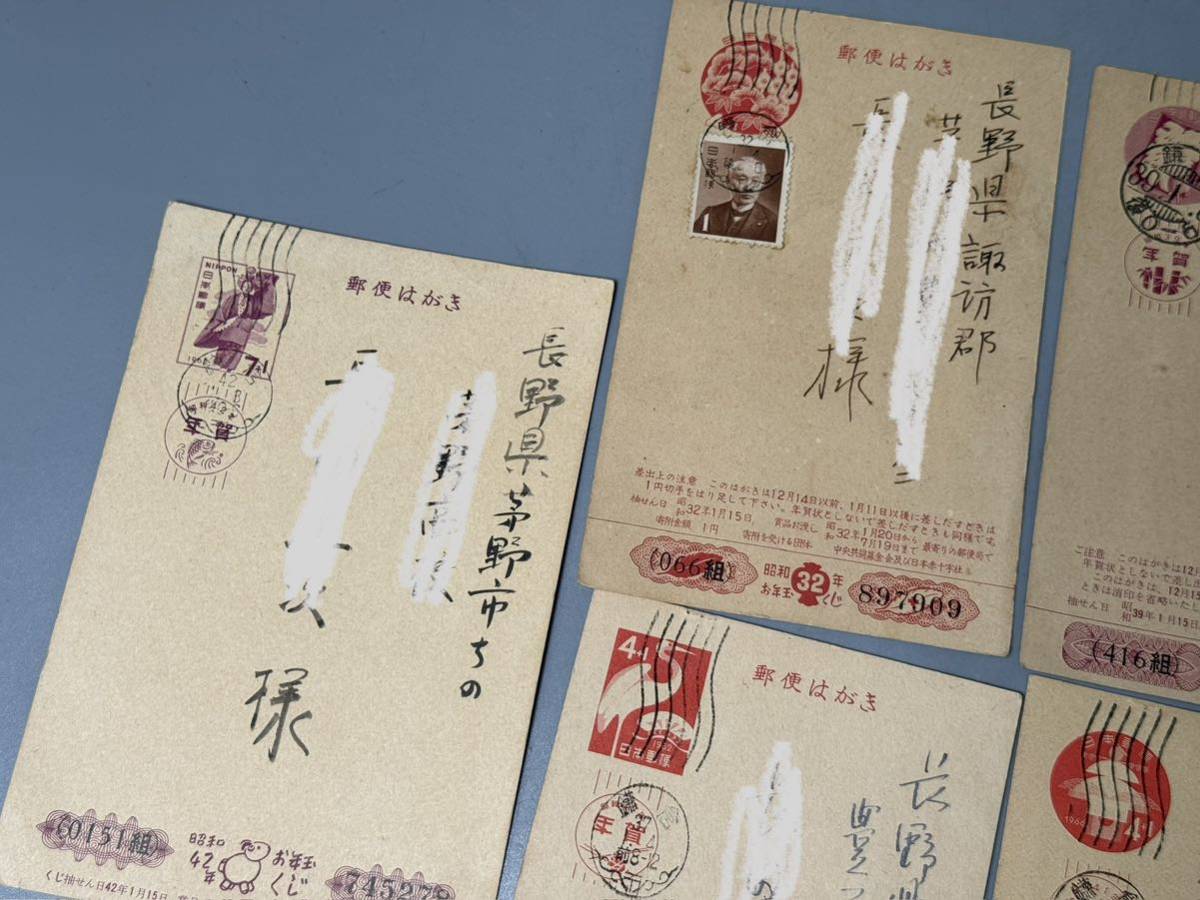 郵便はがき
NIPPON
日本郵便
7+1
年賀
長野県茅野市ちの
様
60151組
昭和
42年
お年玉
くじ
745278
くじ抽せん日42年1月15日
郵便はがき
日本郵便
1
長野県諏訪郡
様
差出上の注意 このはがきは12月14日以前、1月11日以後に差しだすときは
1円切手をはり足して下さい。年賀状としないで差しだすときも同様です。
抽せん日 昭和32年1月15日, 賞品お渡し 昭和32年1月20日から7月19日まで 最寄りの郵便局で
寄附金額 1円 寄附を受ける団体 中央共同募金会及び日本赤十字社
066組
昭和32年
お年玉くじ
897909
郵便はがき
4+1
日本郵便
年賀
前8-12
長野県
の
年賀
ご注意 このはがきは12月
年賀状としないで差し
このはがきは、12月15
ときは消印を省略いた
抽せん日 昭和39年1月15日
416組
日本郵便
4+1